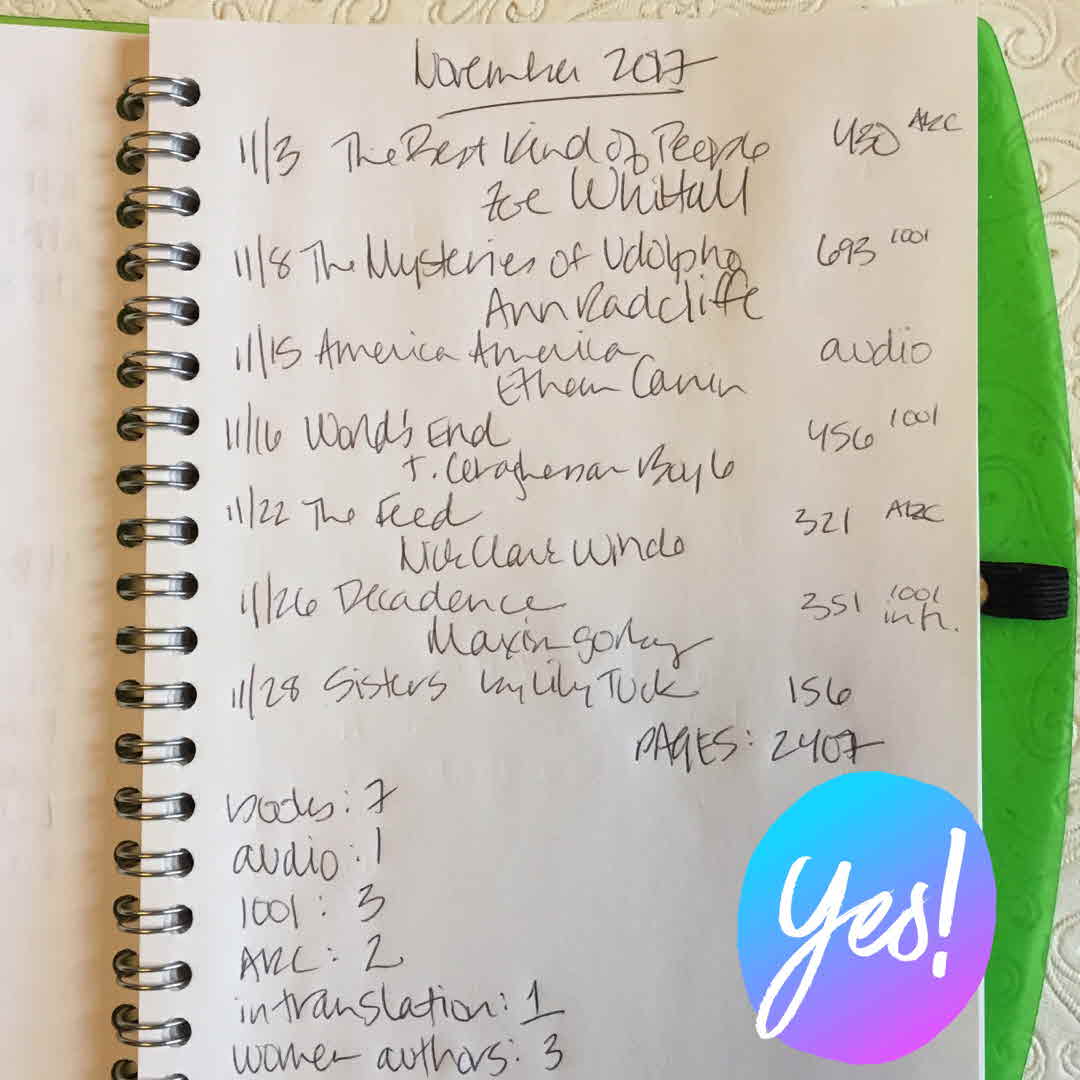 November 2017
11/3 The Best Kind of People 430 ARC
Zoe Whittall
11/8 The Mysteries of Udolpho 693 1001
Ann Radcliffe
11/15 America America audio
Ethan Canin
11/16 World's End 456 1001
T. Coraghessan Boyle
11/22 The Feed 321 ARC
Nick Clark Windo
11/26 Decadence 351 1001
in tr.
Maxim Gorky
11/28 Sisters by Lily Tuck 156
PAGES: 2407
books: 7
audio: 1
1001: 3
ARC: 2
in translation: 1
women authors: 3
yes!